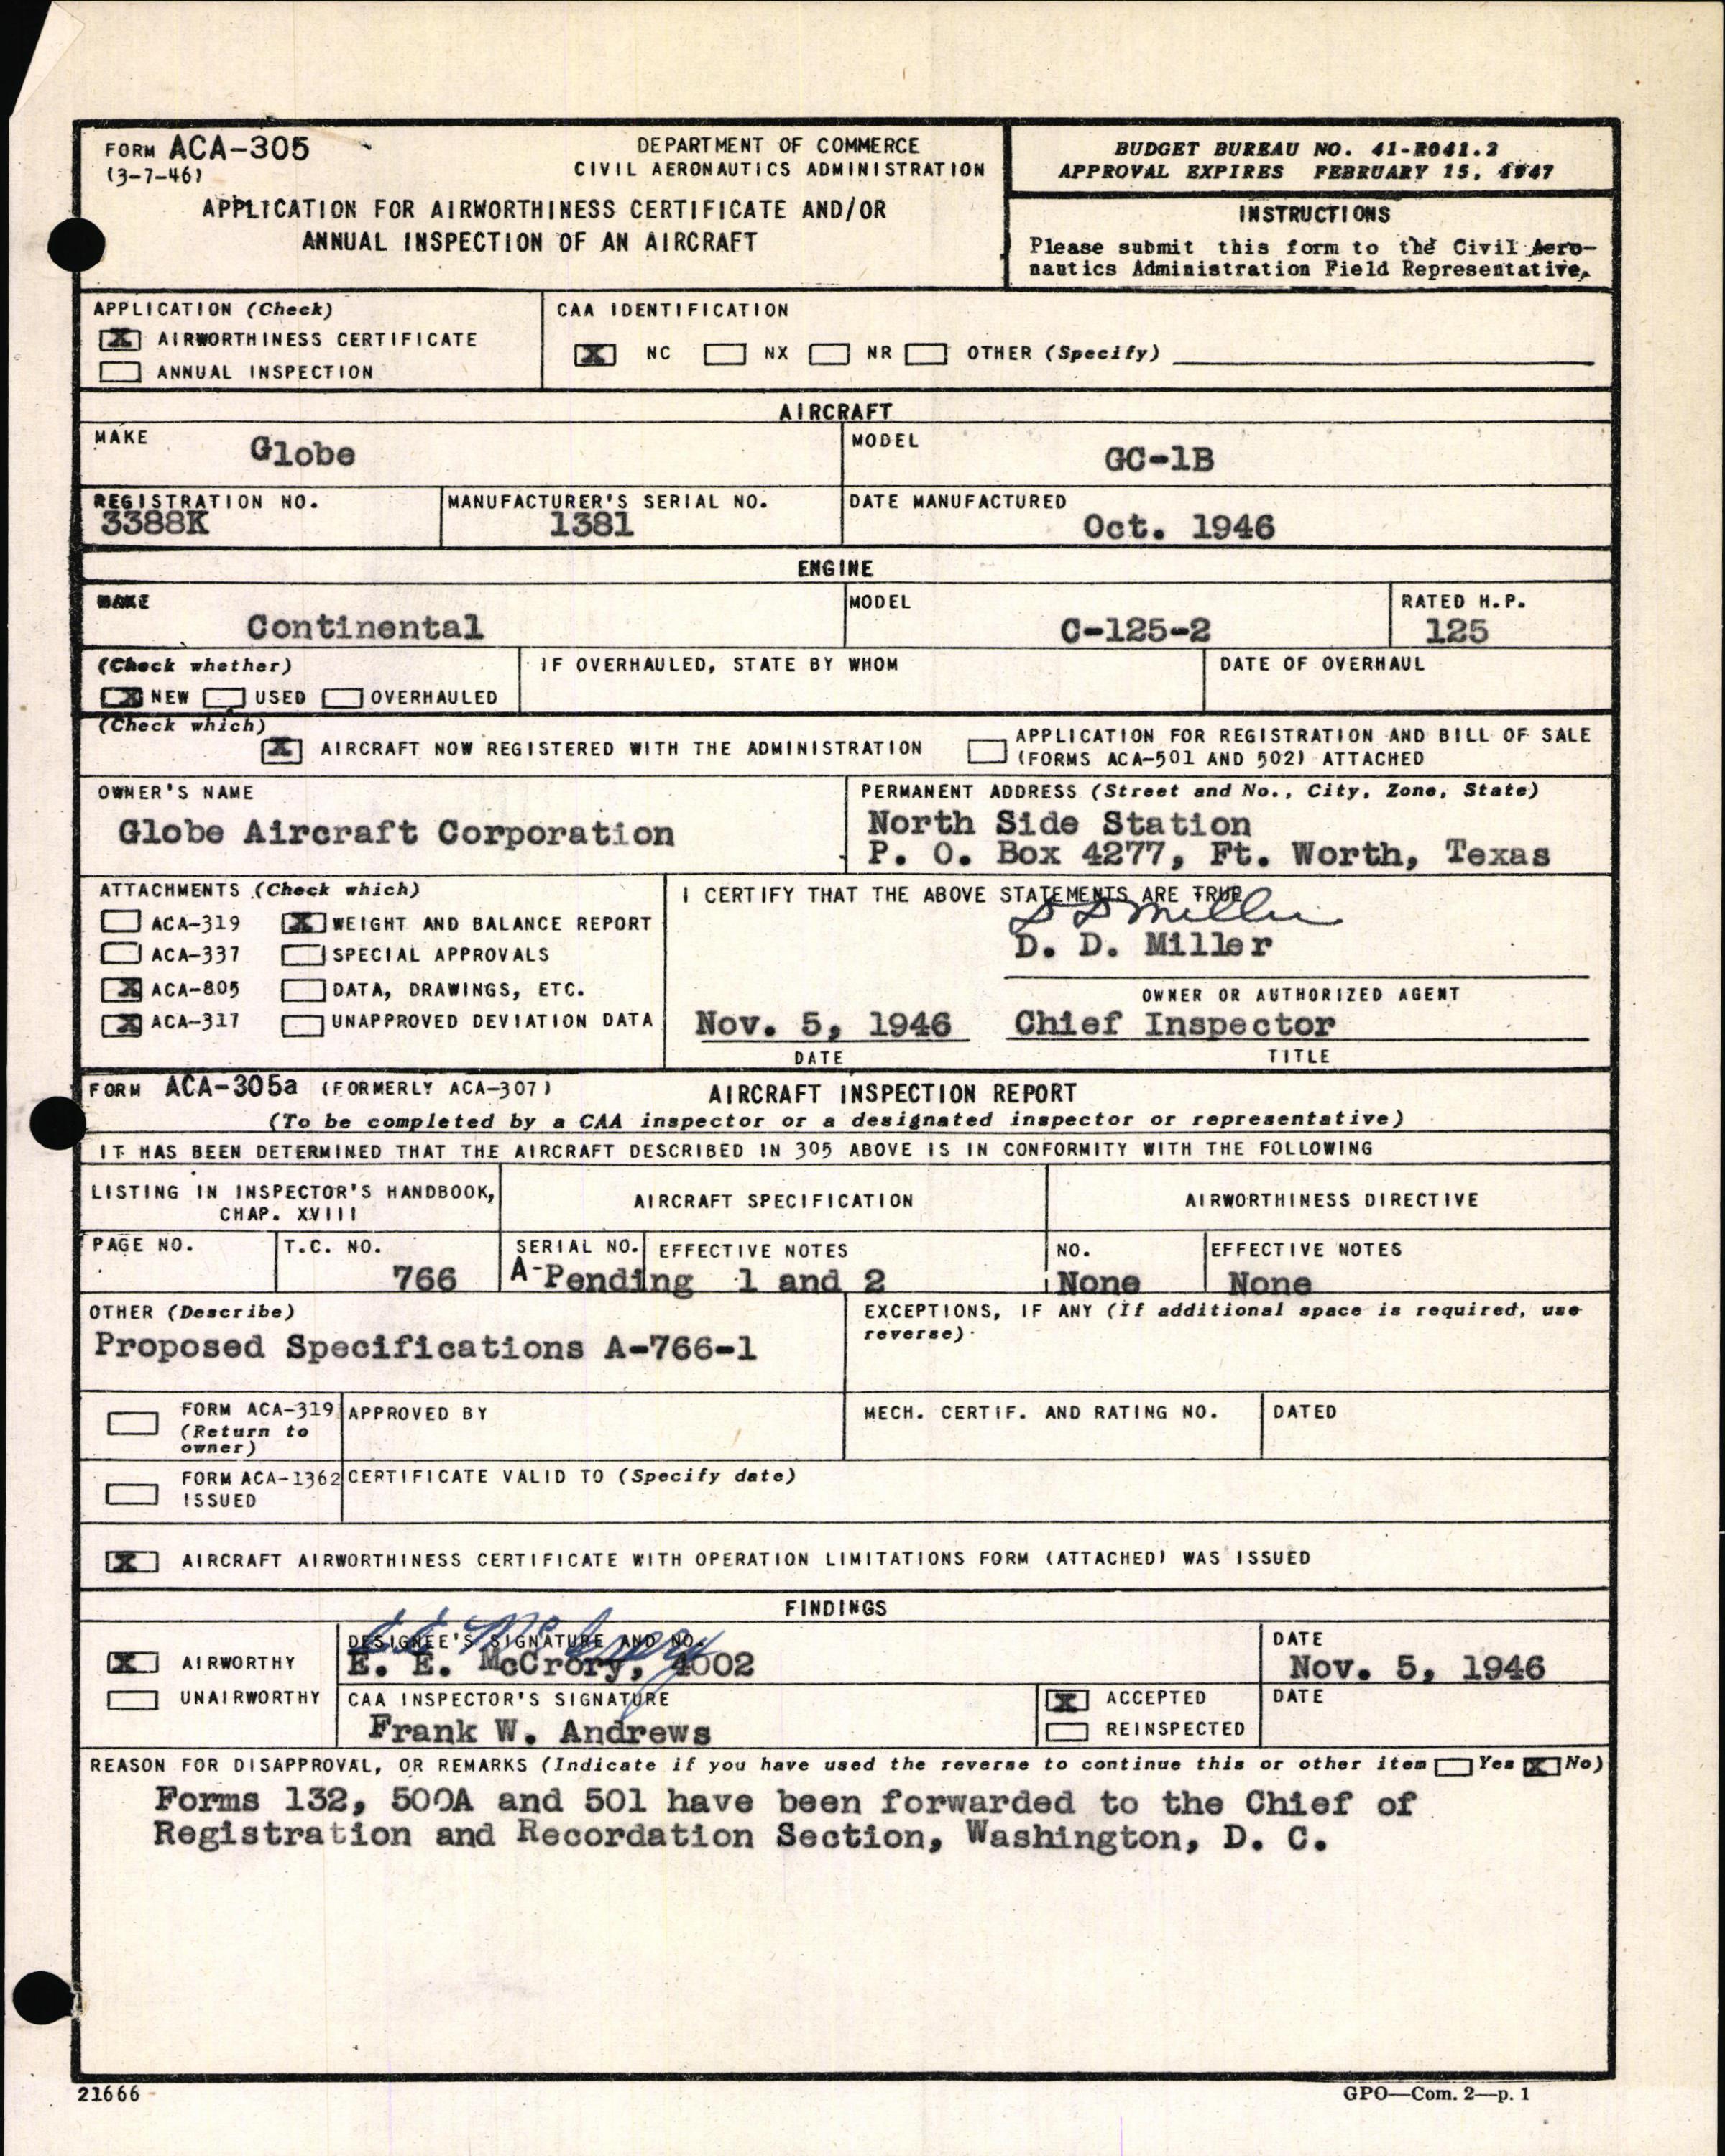 FORM ACA-305
(3-7-46)
DEPARTMENT OF COMMERCE
CIVIL AERONAUTICS ADMINISTRATION
APPLICATION FOR AIRWORTHINESS CERTIFICATE AND/OR
ANNUAL INSPECTION OF AN AIRCRAFT
BUDGET BUREAU NO. 41-R041.2
APPROVAL EXPIRES FEBRUARY 15, 1947
INSTRUCTIONS
Please submit this form to the Civil Aero-
nautics Administration Field Representative.
APPLICATION (Check)
X AIRWORTHINESS CERTIFICATE
ANNUAL INSPECTION
CAA IDENTIFICATION
X NC NX NR OTHER (Specify)
AIRCRAFT
MAKE
Globe
MODEL
GC-1B
REGISTRATION NO.
3388K
MANUFACTURER'S SERIAL NO.
1381
DATE MANUFACTURED
Oct. 1946
ENGINE
MAKE
Continental
MODEL
C-125-2
RATED H.P.
125
(Check whether)
X NEW USED OVERHAULED
IF OVERHAULED, STATE BY WHOM
DATE OF OVERHAUL
(Check which)
X AIRCRAFT NOW REGISTERED WITH THE ADMINISTRATION
APPLICATION FOR REGISTRATION AND BILL OF SALE
(FORMS ACA-501 AND 502) ATTACHED
OWNER'S NAME
Globe Aircraft Corporation
PERMANENT ADDRESS (Street and No., City, Zone, State)
North Side Station
P. O. Box 4277, Ft. Worth, Texas
ATTACHMENTS (Check which)
ACA-319 X WEIGHT AND BALANCE REPORT
ACA-337 SPECIAL APPROVALS
X ACA-805 DATA, DRAWINGS, ETC.
X ACA-317 UNAPPROVED DEVIATION DATA
I CERTIFY THAT THE ABOVE STATEMENTS ARE TRUE
D D Miller
D. D. Miller
OWNER OR AUTHORIZED AGENT
Nov. 5, 1946 Chief Inspector
DATE TITLE
FORM ACA-305a (FORMERLY ACA-307) AIRCRAFT INSPECTION REPORT
(To be completed by a CAA inspector or a designated inspector or representative)
IT HAS BEEN DETERMINED THAT THE AIRCRAFT DESCRIBED IN 305 ABOVE IS IN CONFORMITY WITH THE FOLLOWING
LISTING IN INSPECTOR'S HANDBOOK,
CHAP. XVIII
AIRCRAFT SPECIFICATION
AIRWORTHINESS DIRECTIVE
PAGE NO.
T.C. NO.
766
SERIAL NO. EFFECTIVE NOTES
A-Pending 1 and 2
NO.
None
EFFECTIVE NOTES
None
OTHER (Describe)
Proposed Specifications A-766-1
EXCEPTIONS, IF ANY (If additional space is required, use
reverse)
FORM ACA-319
(Return to
owner)
APPROVED BY
MECH. CERTIF. AND RATING NO.
DATED
FORM ACA-1362
ISSUED
CERTIFICATE VALID TO (Specify date)
X AIRCRAFT AIRWORTHINESS CERTIFICATE WITH OPERATION LIMITATIONS FORM (ATTACHED) WAS ISSUED
FINDINGS
X AIRWORTHY
UNAIRWORTHY
DESIGNEE'S SIGNATURE AND NO.
E E McCrory
E. E. McCrory, 4002
DATE
Nov. 5, 1946
CAA INSPECTOR'S SIGNATURE
Frank W. Andrews
X ACCEPTED
REINSPECTED
DATE
REASON FOR DISAPPROVAL, OR REMARKS (Indicate if you have used the reverse to continue this or other item Yes X No)
Forms 132, 500A and 501 have been forwarded to the Chief of
Registration and Recordation Section, Washington, D. C.
21666
GPO—Com. 2—p. 1